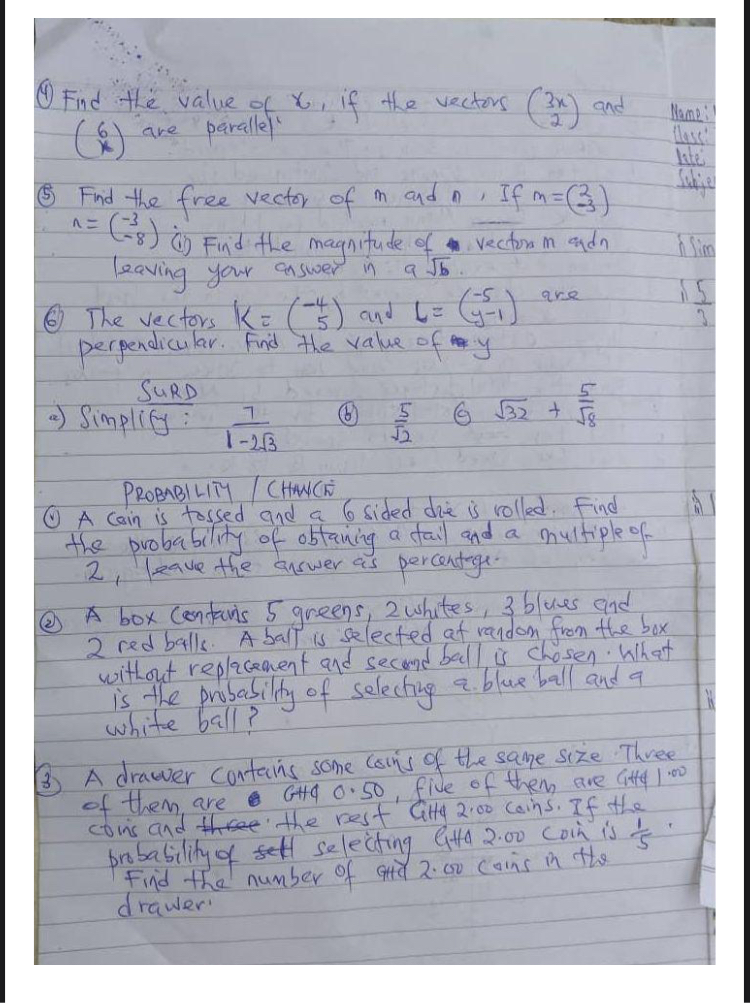 ④ Find the value of x, if the vectors (3x 2) and
(6 x) are parallel
⑤ Find the free vector of m and n, If m = (2 -3)
n = (-3 -8) (i) Find the magnitude of vectors m and n
leaving your answer in a √b.
⑥ The vectors K = (-4 5) and L = (-5 y-1) are
perpendicular. Find the value of y
SURD
a) Simplify: 7/(1-2√3) (b) 5/√2 © √32 + 5/√8
PROBABILITY / CHANCE
① A coin is tossed and a 6 sided die is rolled. Find
the probability of obtaining a tail and a multiple of
2, leave the answer as percentage.
② A box contains 5 greens, 2 whites, 3 blues and
2 red balls. A ball is selected at random from the box
without replacement and second ball is chosen. What
is the probability of selecting a blue ball and a
white ball?
③ A drawer contains some coins of the same size. Three
of them are GH¢ 0.50, five of them are GH¢ 1.00
coins and three the rest GH¢ 2.00 coins. If the
probability of sell selecting GH¢ 2.00 coin is 1/5.
Find the number of GH¢ 2.00 coins in the
drawer.
Name:
Class:
Date:
Subje
Sim
5
3